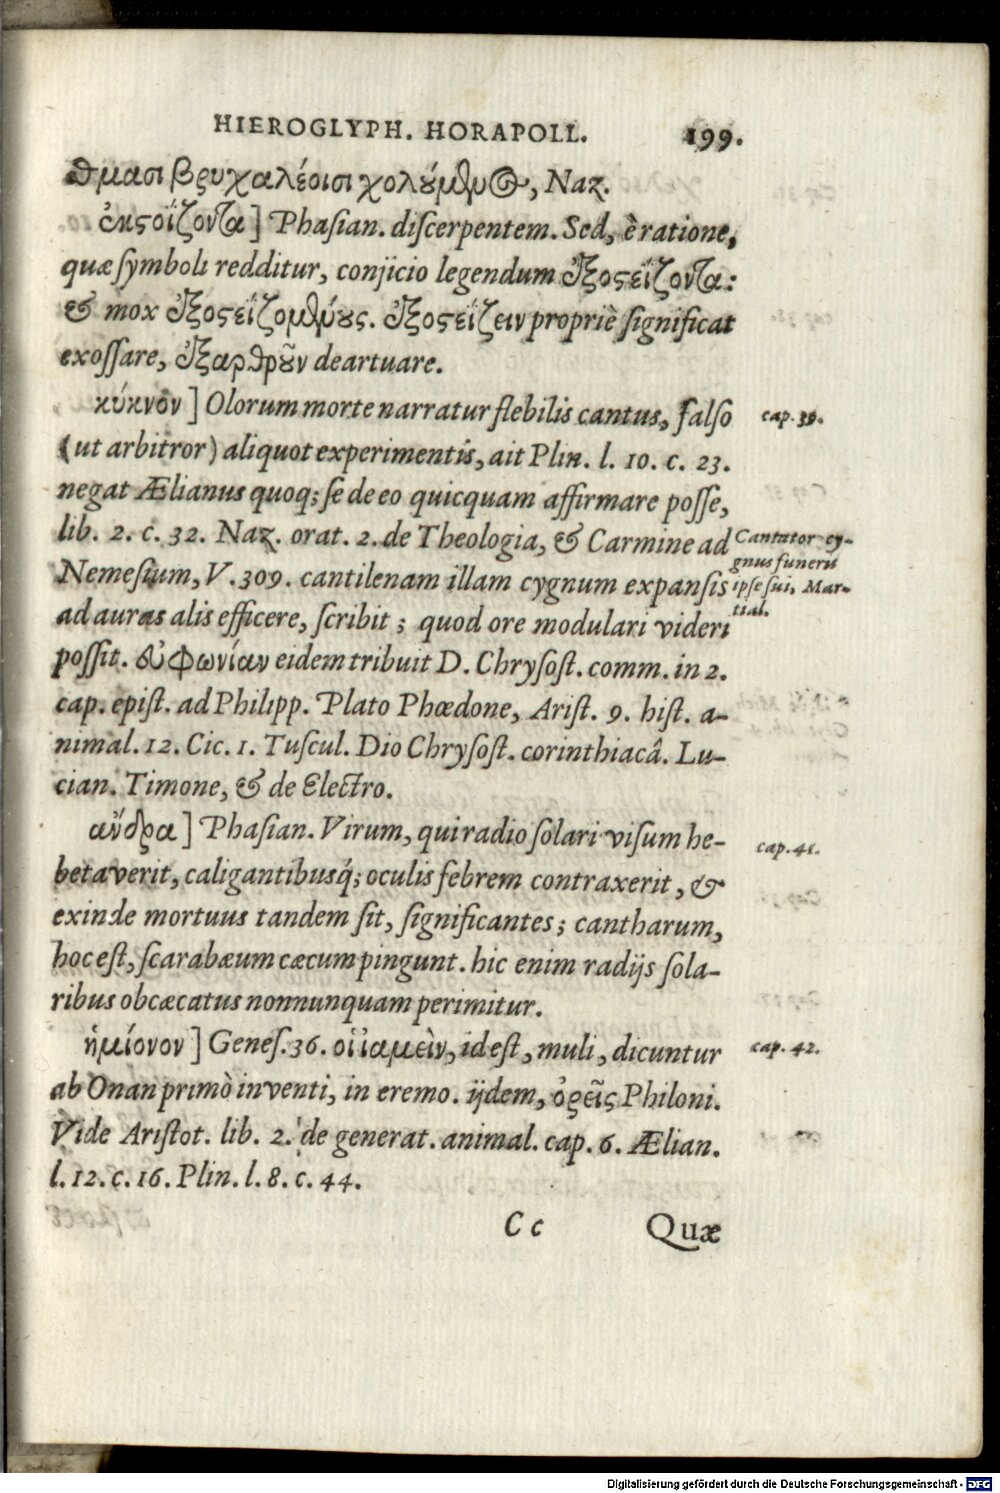 HIEROGLYPH. HORAPOLL. 199.
θμασι βρυχαλέοισι χολούμενος, Naz.
ἐκστοΐζοντα] Phasian. discerpentem. Sed, è ratione,
quæ symboli redditur, conjicio legendum ἐξοστεΐζοντα:
& mox ἐξοστεϊζομένους. ἐξοστεΐζειν propriè significat
exossare, ἐξαρθροῦν deartuare.
κύκνον] Olorum morte narratur flebilis cantus, falso
(ut arbitror) aliquot experimentis, ait Plin. l. 10. c. 23.
negat Ælianus quoq; se de eo quicquam affirmare posse,
lib. 2. c. 32. Naz. orat. 2. de Theologia, & Carmine ad
Nemesium, V. 309. cantilenam illam cygnum expansis
ad auras alis efficere, scribit; quod ore modulari videri
possit. εὐφωνίαν eidem tribuit D. Chrysost. comm. in 2.
cap. epist. ad Philipp. Plato Phœdone, Arist. 9. hist. a-
nimal. 12. Cic. 1. Tuscul. Dio Chrysost. corinthiacâ. Lu-
cian. Timone, & de Electro.
ἄνδρα] Phasian. Virum, qui radio solari visum he-
betaverit, caligantibusq́; oculis febrem contraxerit, &
exinde mortuus tandem sit, significantes; cantharum,
hoc est, scarabæum cæcum pingunt. hic enim radijs sola-
ribus obcæcatus nonnunquam perimitur.
ἡμίονον] Genes. 36. οἱ ἰαμεὶν, id est, muli, dicuntur
ab Onan primò inventi, in eremo. ijdem, ὀρεῖς Philoni.
Vide Aristot. lib. 2. de generat. animal. cap. 6. Ælian.
l. 12. c. 16. Plin. l. 8. c. 44.
Cc Quæ
cap. 39.
Cantator cy-
gnus funeris
ipse sui, Mar-
tial.
cap. 41.
cap. 42.
Digitalisierung gefördert durch die Deutsche Forschungsgemeinschaft - DFG